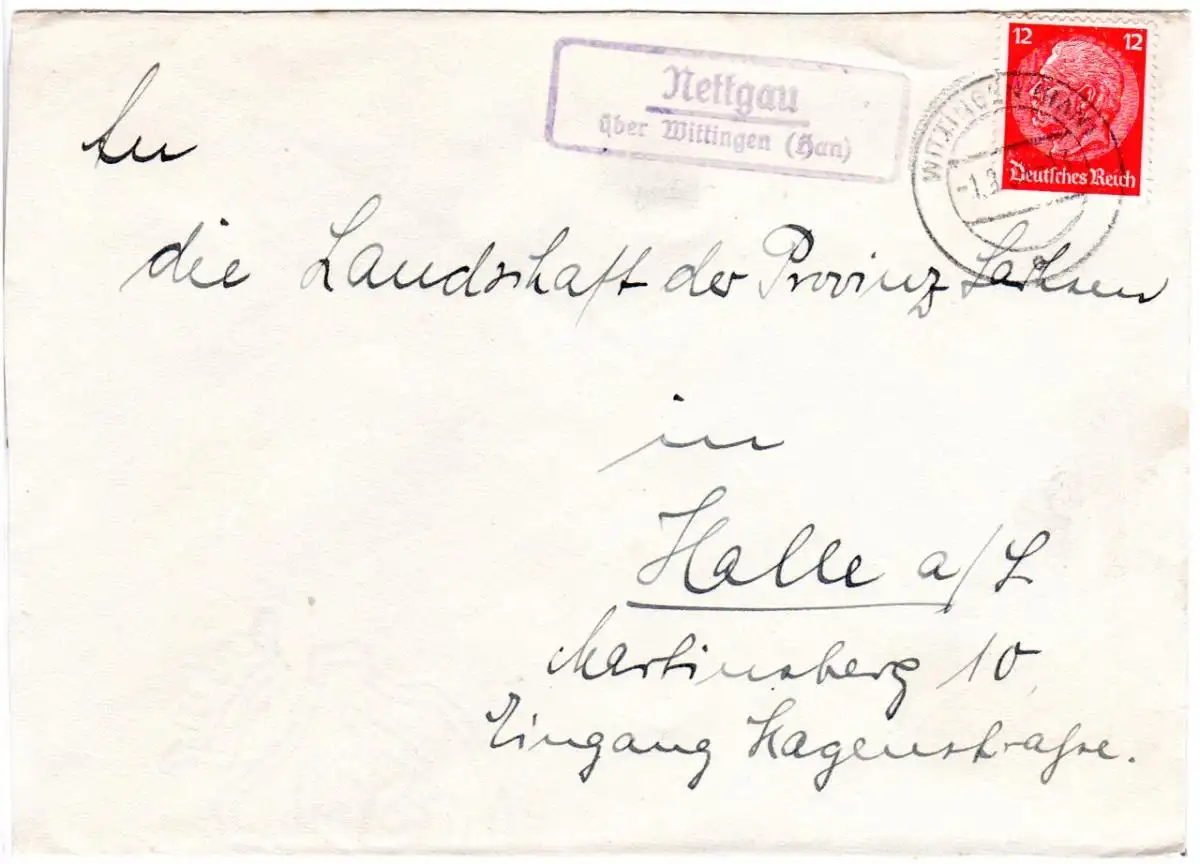 Nettgau
über Wittingen (Han)
12 12
Deutsches Reich
WITTINGEN (HAN)
-1.3.
An
die Landschaft der Provinz Sachsen
in
Halle a/S
Martinsberg 10,
Eingang Hagenstraße.